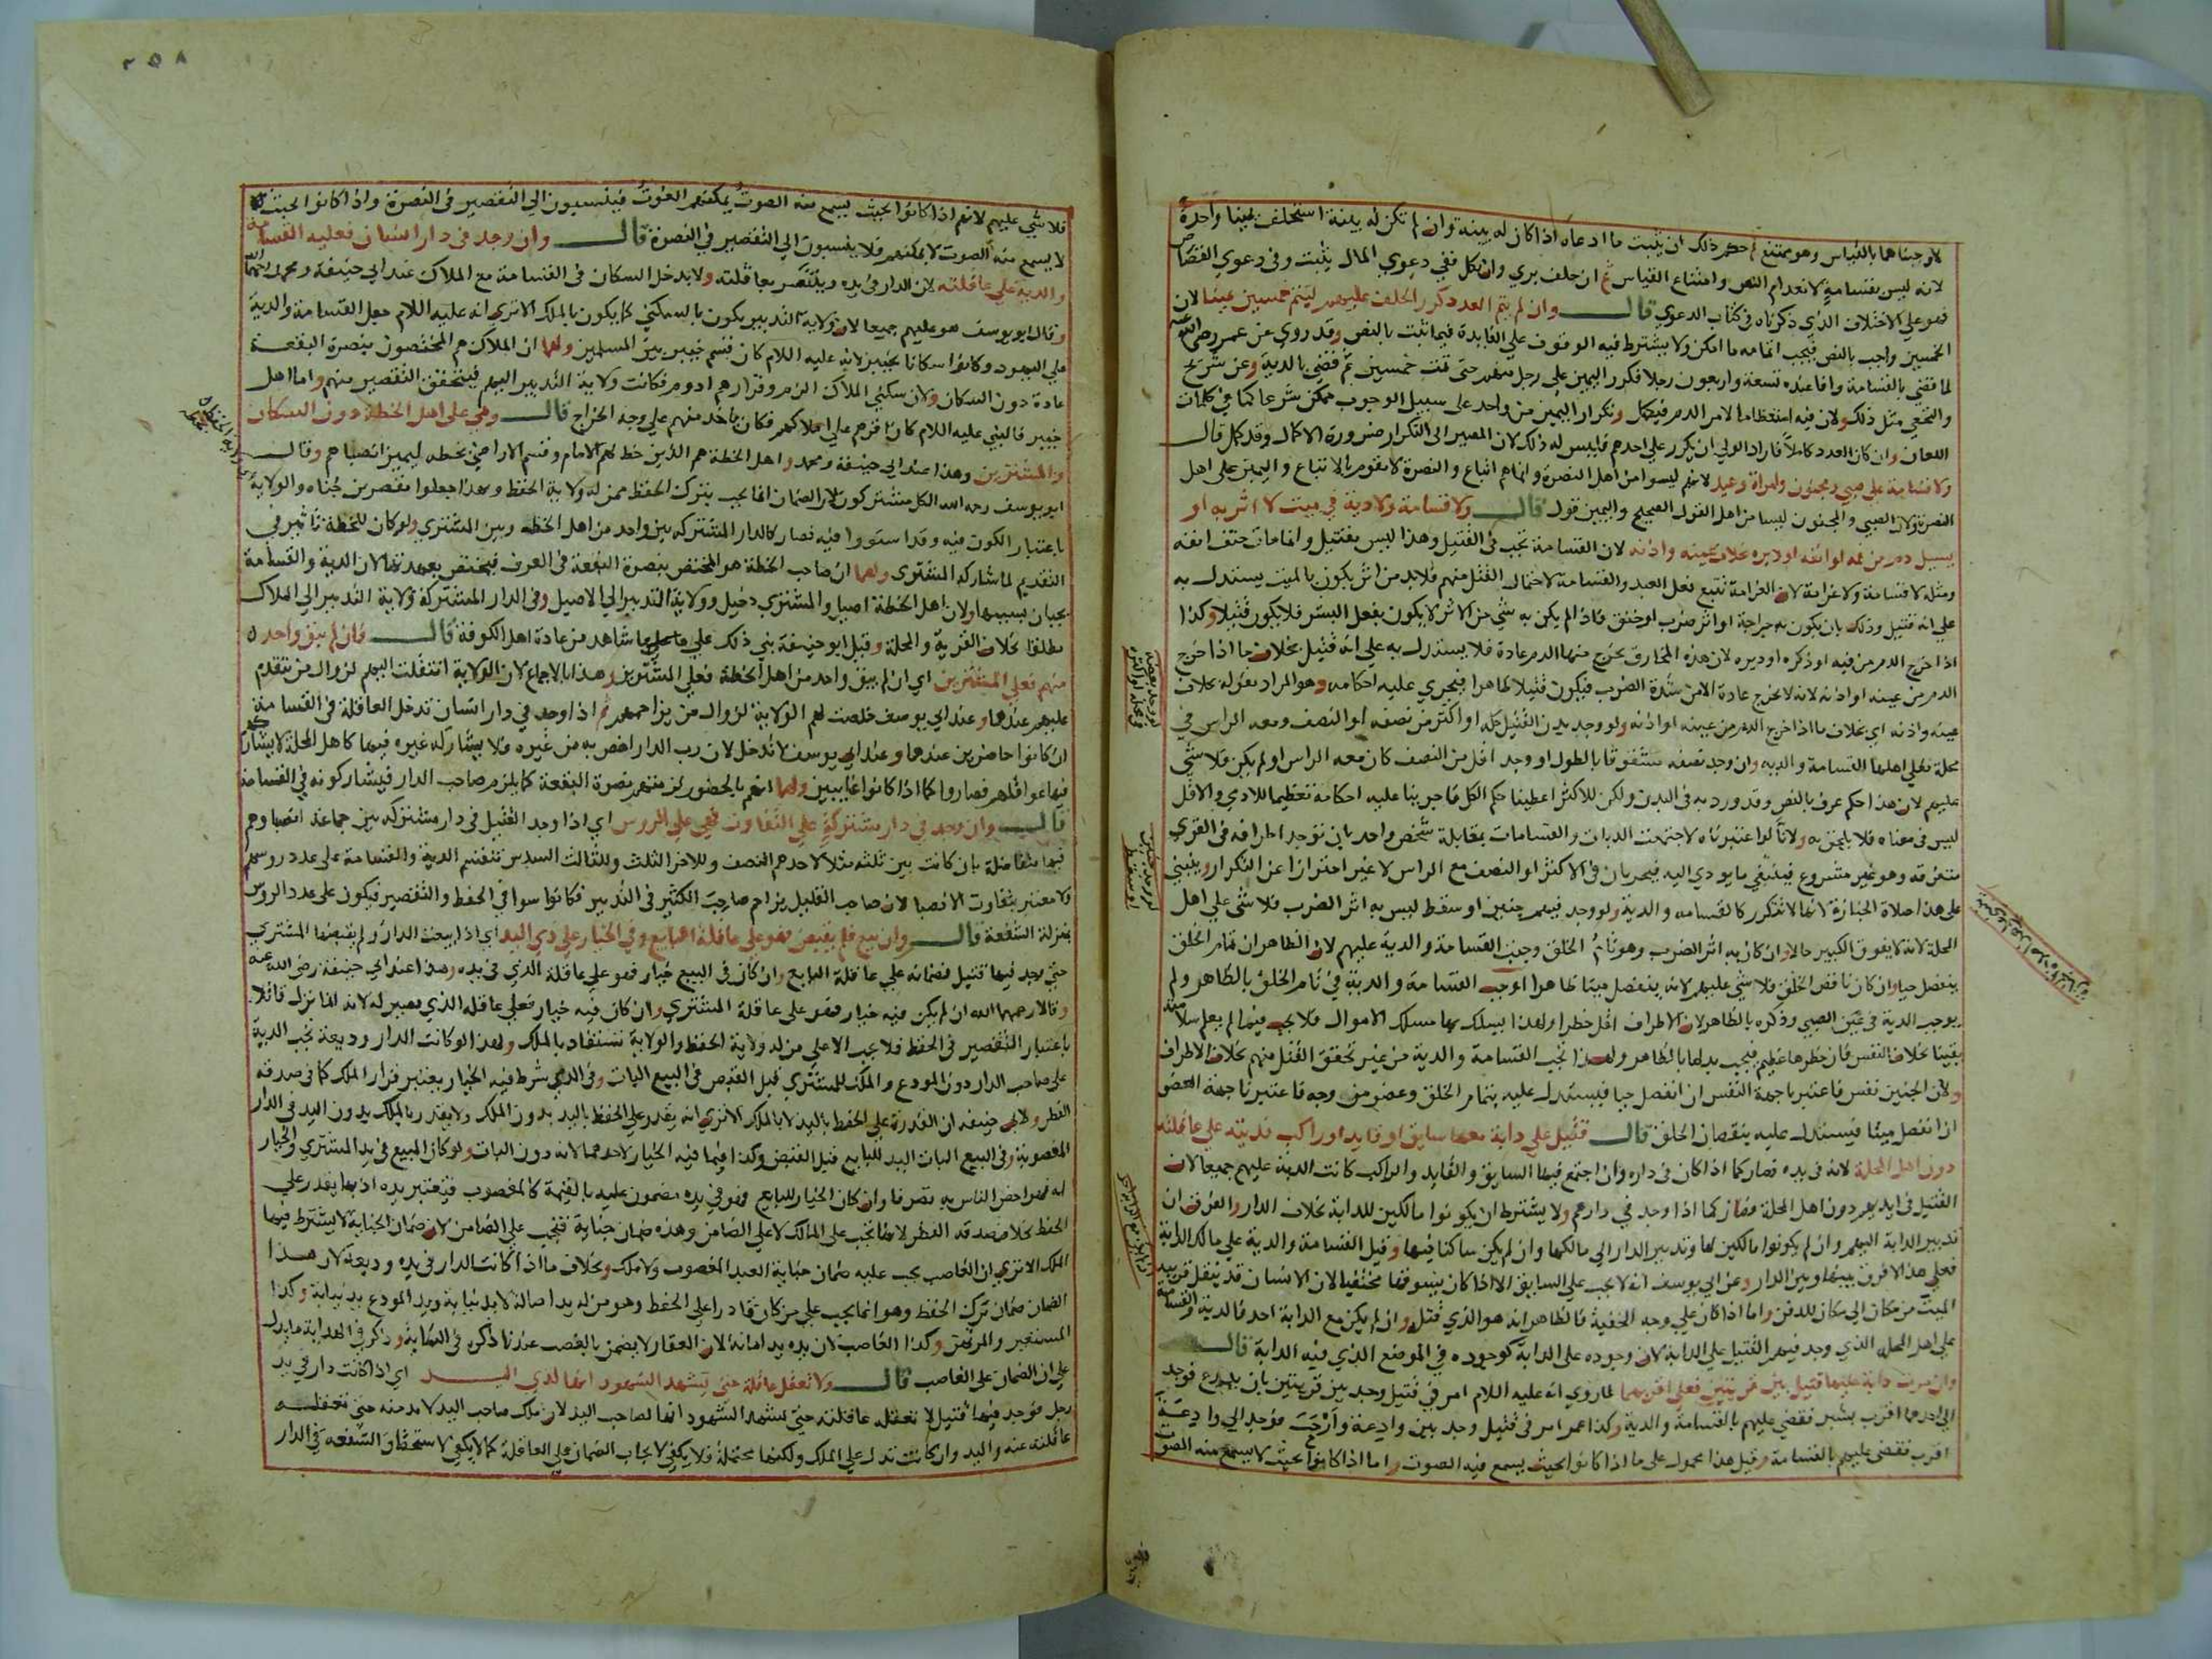 لاوجبناهما بالقياس وهو ممتنع ثم حكم ذلك ان يثبت ما ادعاه اذا كان له بينة وان لم تكن له بينة استحلف يمينا واحدة
لانه ليس بقسامة لانعدام النص وامتناع القياس ثم ان حلف بري وان نكل ففي دعوي المال يثبت وفي دعوي القصاص
فهو علي الاختلاف الذي ذكرناه في كتاب الدعوي قال وان لم يتم العدد كرر الحلف عليهم ليتم خمسين يمينا لان
الخمسين واجب بالنص فيجب اتمامه ما امكن ولا يشترط فيه الوقوف علي الفايدة فيما ثبت بالنص وقد روي عن عمر رضي الله عنه
لما قضي بالقسامة وافا عنده تسعة واربعون رجلا فكرر اليمين علي رجل منهم حتى تمت خمسين ثم قضي بالدية وعن شريح
والنخعي مثل ذلك ولان فيه استعظاما لامر الدم فيكمل وتكرار اليمين من واحد على سبيل الوجوب ممكن شرعا كما في كلمات
اللعان وان كان العدد كاملا فاراد الولي ان يكرر علي احدهم فليس له ذلك لان المصير الى التكرار ضرورة الاكمال وقد كمل قال
ولا قسامة على صبي ومجنون وامراة وعبد لانهم ليسوا من اهل النصرة وانما هم اتباع والنصرة لا تقوم بالاتباع واليمين على اهل
النصرة ولان الصبي والمجنون ليسا من اهل القول الصحيح واليمين قول قال ولا قسامة ولا دية في ميت لا اثر به او
يسيل دم من فمه او انفه او دبره بخلاف عينه واذنه لان القسامة تجب في القتيل وهذا ليس بقتيل وانما مات حتف انفه
ومثله لا قسامة ولا غرامة لان الغرامة تتبع فعل العبد والقسامة لاحتمال القتل منهم فلا بد من اثر يكون بالميت يستدل به
علي انه قتيل وذلك بان يكون به جراحة او اثر ضرب او خنق فاذا لم يكن به شي من الاثر لا يكون بفعل البشر فلا يكون قتيلا وكذا
اذا خرج الدم من فيه او ذكره او دبره لان هذه المخارق يخرج منها الدم عادة فلا يستدل به علي انه قتيل بخلاف ما اذا خرج
الدم من عينه او اذنه لانه لا يخرج عادة الا من شدة الضرب فيكون قتيلا ظاهرا فيجري عليه احكامه وهو المراد بقوله بخلاف
عينه واذنه اي بخلاف ما اذا خرج الدم من عينه او اذنه ولو وجد بدن القتيل كله او اكثر من نصفه او النصف ومعه الراس في
محلة فعلي اهلها القسامة والدية وان وجد نصفه مشقوقا بالطول او وجد اقل من النصف كان معه الراس او لم يكن فلا شي
عليهم لان هذا حكم عرف بالنص وقد ورد به في البدن ولكن للاكثر اعطينا حكم الكل فاجرينا عليه احكامه تعظيما للادمي والاقل
ليس في معناه فلا يلحق به ولانا لو اعتبرناه لاجتمعت الديات والقسامات بمقابلة شخص واحد بان توجد اطرافه في القري
متفرقه وهو غير مشروع فينبغي ما يودي اليه فيجريان في الاكثر او النصف مع الراس لا غير احترازا عن التكرار وينبني
على هذا صلاة الجنازة لانها لا تتكرر كالقسامه والدية ولو وجد فيهم جنين او سقط ليس به اثر الضرب فلا شي علي اهل
المحلة لانه لا يفوق الكبير حالا وان كان به اثر الضرب وهو تام الخلق وجبت القسامة والدية عليهم لان الظاهر ان تام الخلق
ينفصل حيا وان كان ناقص الخلق فلا شي عليهم لانه ينفصل ميتا ظاهرا اوجب القسامة والدية في تام الخلق بالظاهر ولم
يوجب الدية في عين الصبي وذكره بالظاهر لان الاطراف اقل خطرا ولهذا يسلك بها مسلك الاموال فلا يجب فيها لم يعلم سلامته
يقينا بخلاف النفس فان خطرها عظيم فيجب بدلها بالظاهر ولهذا تجب القسامة والدية من غير تحقق القتل منهم بخلاف الاطراف
ولان الجنين نفس فاعتبر نا جهة النفس ان انفصل حيا فيستدل عليه بتمام الخلق وعضو من وجه فاعتبرنا جهة العضو
اذا انفصل ميتا فيستدل عليه بنقصان الخلق قال قتيل علي دابة معها سايق او قايد او راكب فديته علي عاقلته
دون اهل المحلة لانه في يده فصار كما اذا كان في داره وان اجتمع فيها السايق والقايد والراكب كانت الدية عليهم جميعا لان
القتيل في ايديهم دون اهل المحلة فصار كما اذا وجد في دارهم ولا يشترط ان يكونوا مالكين للدابة بخلاف الدار والفرق ان
تدبير الدابة اليهم وان لم يكونوا مالكين لها وتدبير الدار الي مالكها وان لم يكن ساكنا فيها وقيل القسامة والدية علي مالك الدابة
فعلي هذا لا فرق بينها وبين الدار وعن ابي يوسف انه لا يجب علي السايق الا اذا كان يسوقها مختفيا لان الانسان قد ينقل قريبه
الميت من مكان الي مكان للدفن واما اذا كان علي وجه الخفية فالظاهر انه هو الذي قتله وان لم يكن مع الدابة احد فالدية والقسامة
علي اهل المحلة الذي وجد فيهم القتيل علي الدابة لان وجوده على الدابة كوجوده في الموضع الذي فيه الدابة قال
وان مرت دابة عليها قتيل بين قريتين فعلي اقربهما لما روي انه عليه السلام امر في قتيل وجد بين قريتين بان يذرع فوجد
الي احدهما اقرب بشبر فقضي عليهم بالقسامة والدية وكذا عمر امر في قتيل وجد بين وادعة وارحب فوجد الي وادعة
اقرب فقضي عليهم بالقسامة وقيل هذا محمول على ما اذا كانوا بحيث يسمع فيه الصوت واما اذا كانوا بحيث لا يسمع منه الصوت
٢٥٨
فلا شي عليهم لانهم اذا كانوا بحيث يسمع منه الصوت يمكنهم الغوث فينسبون الي التقصير في النصرة واذا كانوا بحيث
لا يسمع منه الصوت لا يمكنهم فلا ينسبون الي التقصير في النصرة قال وان وجد في دار انسان فعليه القسامة
والدية علي عاقلته لان الدار في يده وينتصر بعاقلته ولا يدخل السكان في القسامة مع الملاك عند ابي حنيفة ومحمد رحمهما الله
وقال ابو يوسف هو عليهم جميعا لان ولاية التدبير يكون بالسكني كما يكون بالملك الا تري انه عليه السلام جعل القسامة والدية
على اليهود وكانوا سكانا بخيبر لانه عليه السلام كان قسم خيبر بين المسلمين ولهما ان الملاك هم المختصون بنصرة البقعة
عادة دون السكان ولان سكني الملاك الزم وقرارهم ادوم فكانت ولاية التدبير اليهم فيتحقق التقصير منهم واما اهل
خيبر فالنبي عليه السلام كان اقرهم علي املاكهم فكان ياخذ منهم علي وجه الخراج قال وهي على اهل الخطة دون السكان
والمشترين وهذا عند ابي حنيفة ومحمد واهل الخطة هم الذين خط لهم الامام وقسم الاراضي بخطه ليميز انصباهم وقال
ابو يوسف رحمه الله الكل مشتركون لان الضمان انما يجب بترك الحفظ ممن له ولاية الحفظ وبهذا جعلوا مقصرين جناه والولاية
باعتبار الكون فيه وقد استووا فيه فصار كالدار المشتركه بين واحد من اهل الخطه وبين المشتري ولو كان للخطة تاثير في
التقديم لما شاركه المشتري ولهما ان صاحب الخطة هو المختص بنصرة البقعة في العرف فيختص بعهدتها لان الدية والقسامة
يجبان بسببها ولان اهل الخطة اصيل والمشتري دخيل وولاية التدبير الي الاصيل وفي الدار المشتركة ولاية التدبير الي الملاك
مطلقا بخلاف القرية والمحلة وقيل ابو حنيفة بني ذلك علي ما شاهد من عادة اهل الكوفة قال فان لم يبق واحد
منهم فعلي المشترين اي ان لم يبق واحد من اهل الخطة فعلي المشترين وهذا بالاجماع لان الولاية انتقلت اليهم لزوال من يتقدم
عليهم عندهما وعند ابي يوسف خلصت لهم الولاية لزوال من يزاحمهم ثم اذا وجد في دار انسان تدخل العاقلة في القسامة
ان كانوا حاضرين عندهما وعند ابي يوسف لا تدخل لان رب الدار اخص به من غيره فلا يشاركه غيره فيها كاهل المحلة لا يشاركهم
فيها عواقلهم فصاروا كما اذا كانوا غايبين ولهما انهم بالحضور لزمتهم نصرة البقعة كما يلزم صاحب الدار فيشاركونه في القسامة
قال وان وجد في دار مشتركة علي التفاوت فهي علي الروس اي اذا وجد القتيل في دار مشتركه بين جماعة انصباوهم
فيها متفاضلة بان كانت بين ثلثه مثلا لاحدهم النصف وللاخر الثلث وللثالث السدس تنقسم الدية والقسامة على عدد روسهم
ولا معتبر بتفاوت الانصبا لان صاحب القليل يزاحم صاحب الكثير في التدبير فكانوا سوا في الحفظ والتقصير فيكون على عدد الروس
بمنزلة الشفعة قال وان بيع فلم يقبض فهو علي عاقلة البايع وفي الخيار علي ذي اليد اي اذا بيعت الدار ولم يقبضها المشتري
حتى وجد فيها قتيل فضمانه علي عاقلة البايع وان كان في البيع خيار فهو علي عاقلة الذي في يده وهذا عند ابي حنيفة رضي الله عنه
وقالا رحمهما الله ان لم يكن فيه خيار فهو على عاقلة المشتري وان كان فيه خيار فعلي عاقله الذي يصير له لانه انما نزل قاتلا
باعتبار التقصير في الحفظ فلا يجب الا علي من له ولاية الحفظ والولاية تستفاد بالملك ولهذا لو كانت الدار وديعة تجب الدية
على صاحب الدار دون المودع والملك للمشتري قبل القبض في البيع البات وفي الذي شرط فيه الخيار يعتبر قرار الملك كما في صدقه
الفطر ولابي حنيفه ان القدرة على الحفظ باليد لا بالملك الا تري انه يقدر علي الحفظ باليد بدون الملك ولا يقدر بالملك بدون اليد في الدار
المغصوبة وفي البيع البات اليد للبايع قبل القبض وكذا فيما فيه الخيار لاحدهما لانه دون البات ولو كان المبيع في يد المشتري والخيار
له فهو اخص الناس به تصرفا وان كان الخيار للبايع فهو في يده مضمون عليه بالقيمة كالمغصوب فيعتبر يده اذ بها يقدر علي
الحفظ بخلاف صدقة الفطر لانها تجب على المالك لا علي الضامن وهذه ضمان جناية فتجب على الضامن لان ضمان الجناية لا يشترط فيها
الملك الا تري ان الغاصب يجب عليه ضمان جناية العبد المغصوب ولا ملك وبخلاف ما اذا كانت الدار في يده وديعة لان هذا
الضمان ضمان ترك الحفظ وهو انما يجب علي من كان قادرا علي الحفظ وهو من له يد اصالة لا يد نيابة ويد المودع يد نيابة وكذا
المستعير والمرتهن وكذا الغاصب لان يده يد امانة لان العقار لا يضمن بالغصب عندنا ذكره في النهاية وذكر في الهداية ما يدل
علي ان الضمان على الغاصب قال ولا تعقل عاقلة حتى تشهد الشهود انها لذي اليد اي اذا كانت دار في يد
رجل فوجد فيها قتيل لا تعقله عاقلته حتى تشهد الشهود انها لصاحب اليد لان ملك صاحب اليد لا بد منه حتى تعقله
عاقلته عنه واليد وان كانت تدل علي الملك ولكنها محتملة فلا يكفي لايجاب الضمان علي العاقلة كما لا يكفي لاستحقاق الشفعه في الدار